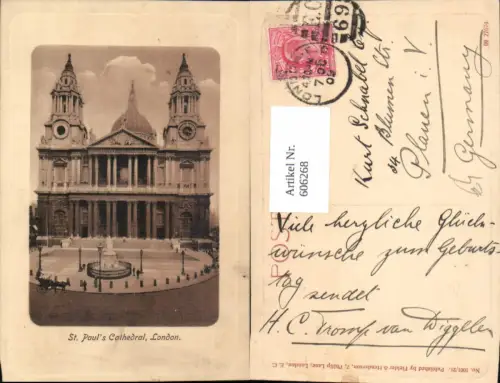 St. Paul's Cathedral, London.
Artikel Nr.
606268
LONDON
7 OC
Kurt Schnabel
34 Blumen Str.
Plauen i. V.
Germany
POST
Viele herzliche Glück-
wünsche zum Geburts-
tag sendet
H. C. Tromp van Diggelen
Published by Pictor & Henderson, 7, Philip Lane, London, E. C.